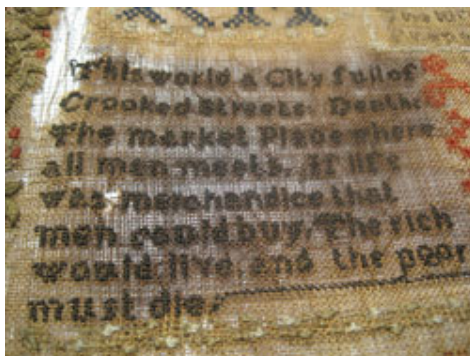 This world a City full of
Crooked Streets. Death
The market Place where
all men meets. If life
was merchandice that
men could buy. The rich
would live and the poor
must die.